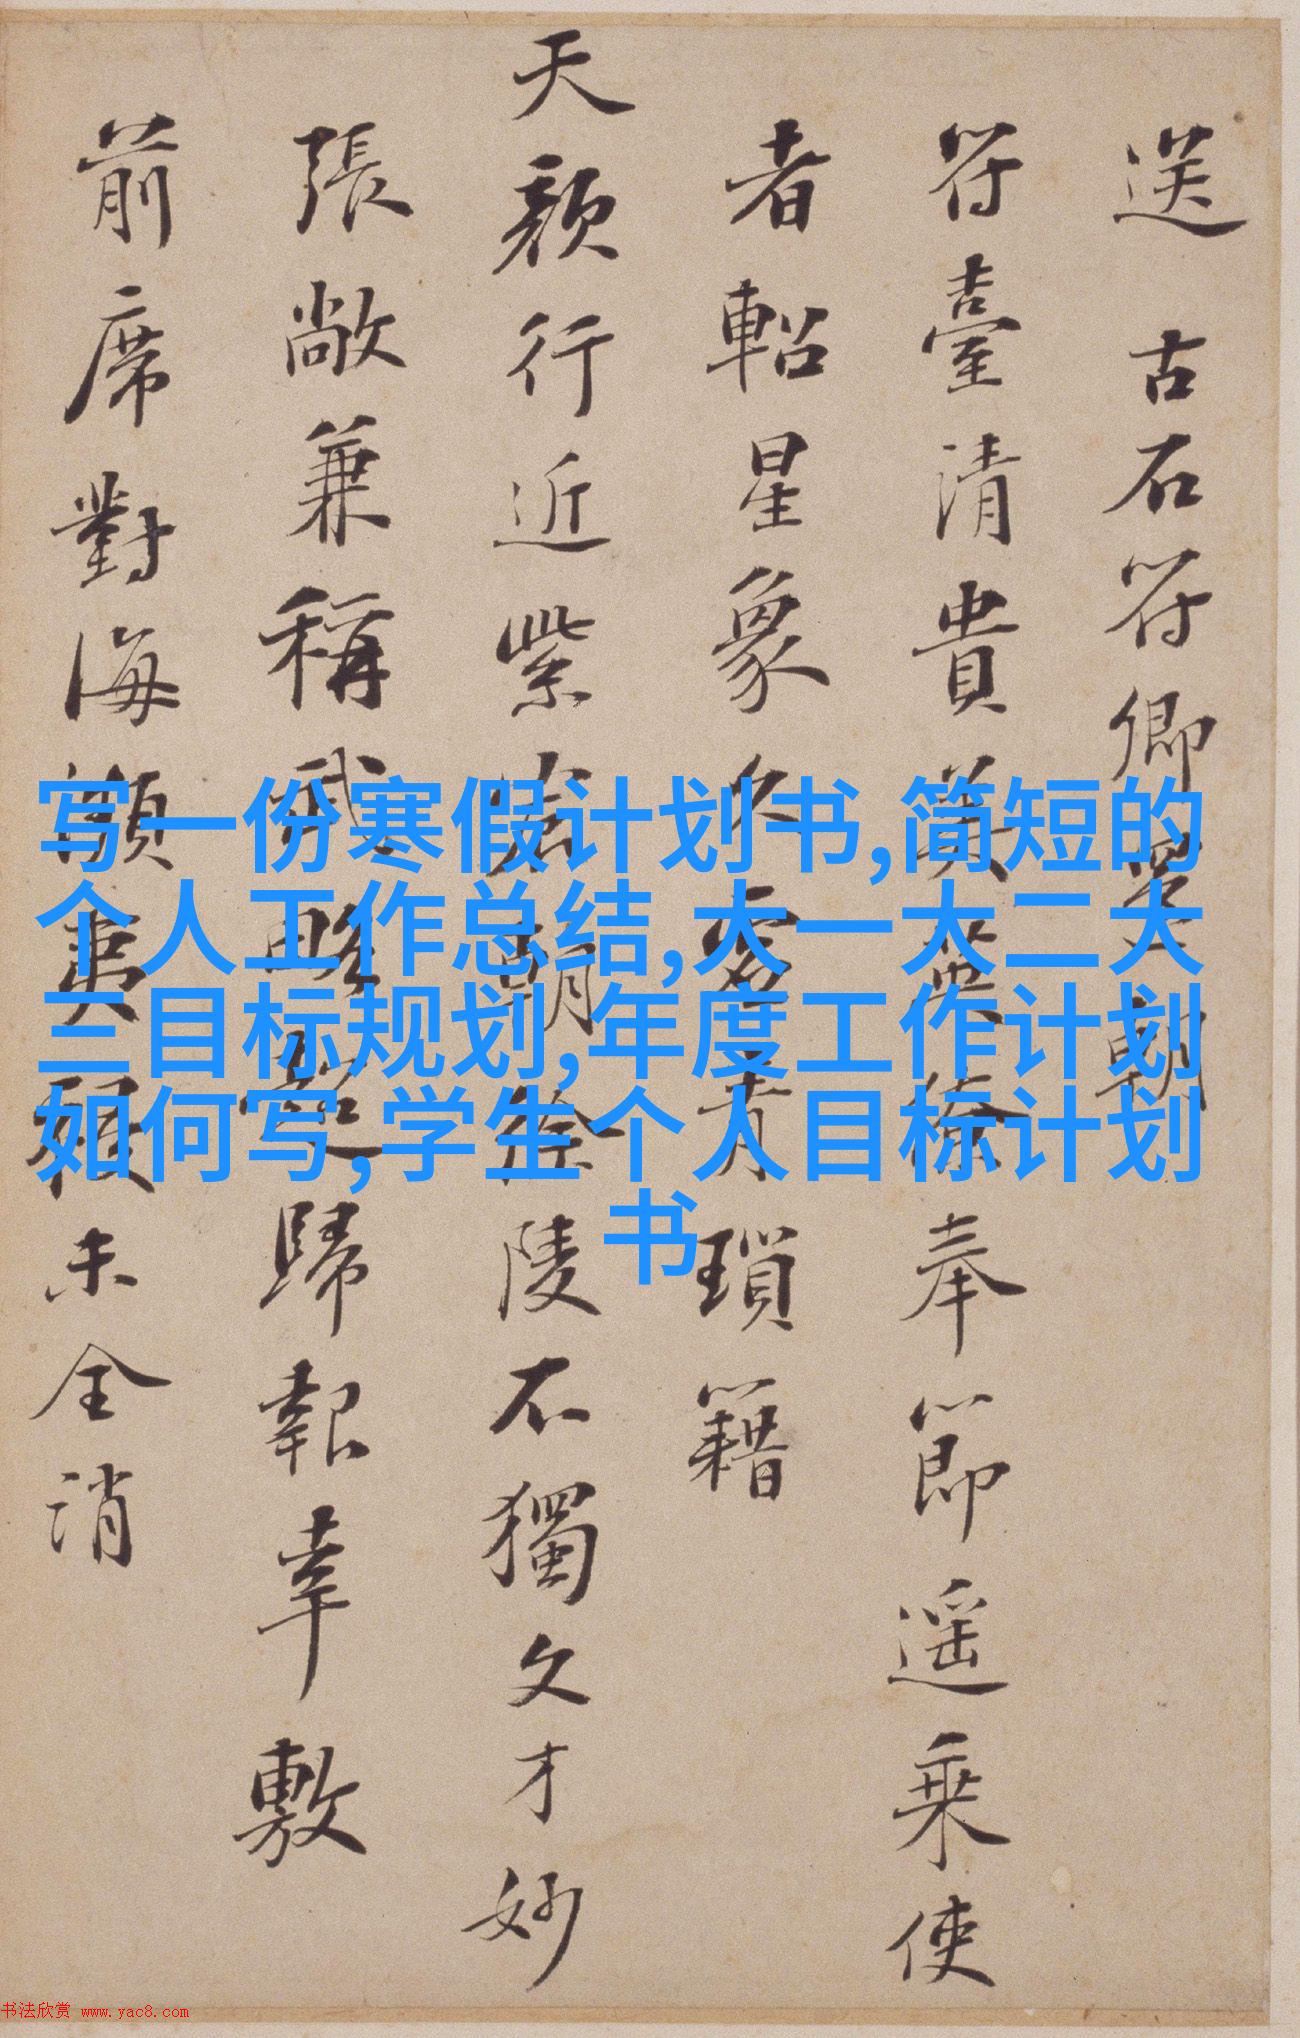 送 古石符卿 朝
符臺清貴英 奉節遥乘使
者軺星象久 青瑣籍
天顔行近紫宸朝徐陵不獨文才妙
張敞兼稱武略超歸報幸敷
前席對海瀕夷 未全消
写一份寒假计划书,简短的
个人工作总结,大一大二大
三目标规划,年度工作计划
如何写,学生个人目标计划
书
书法欣赏 www.yac8.com